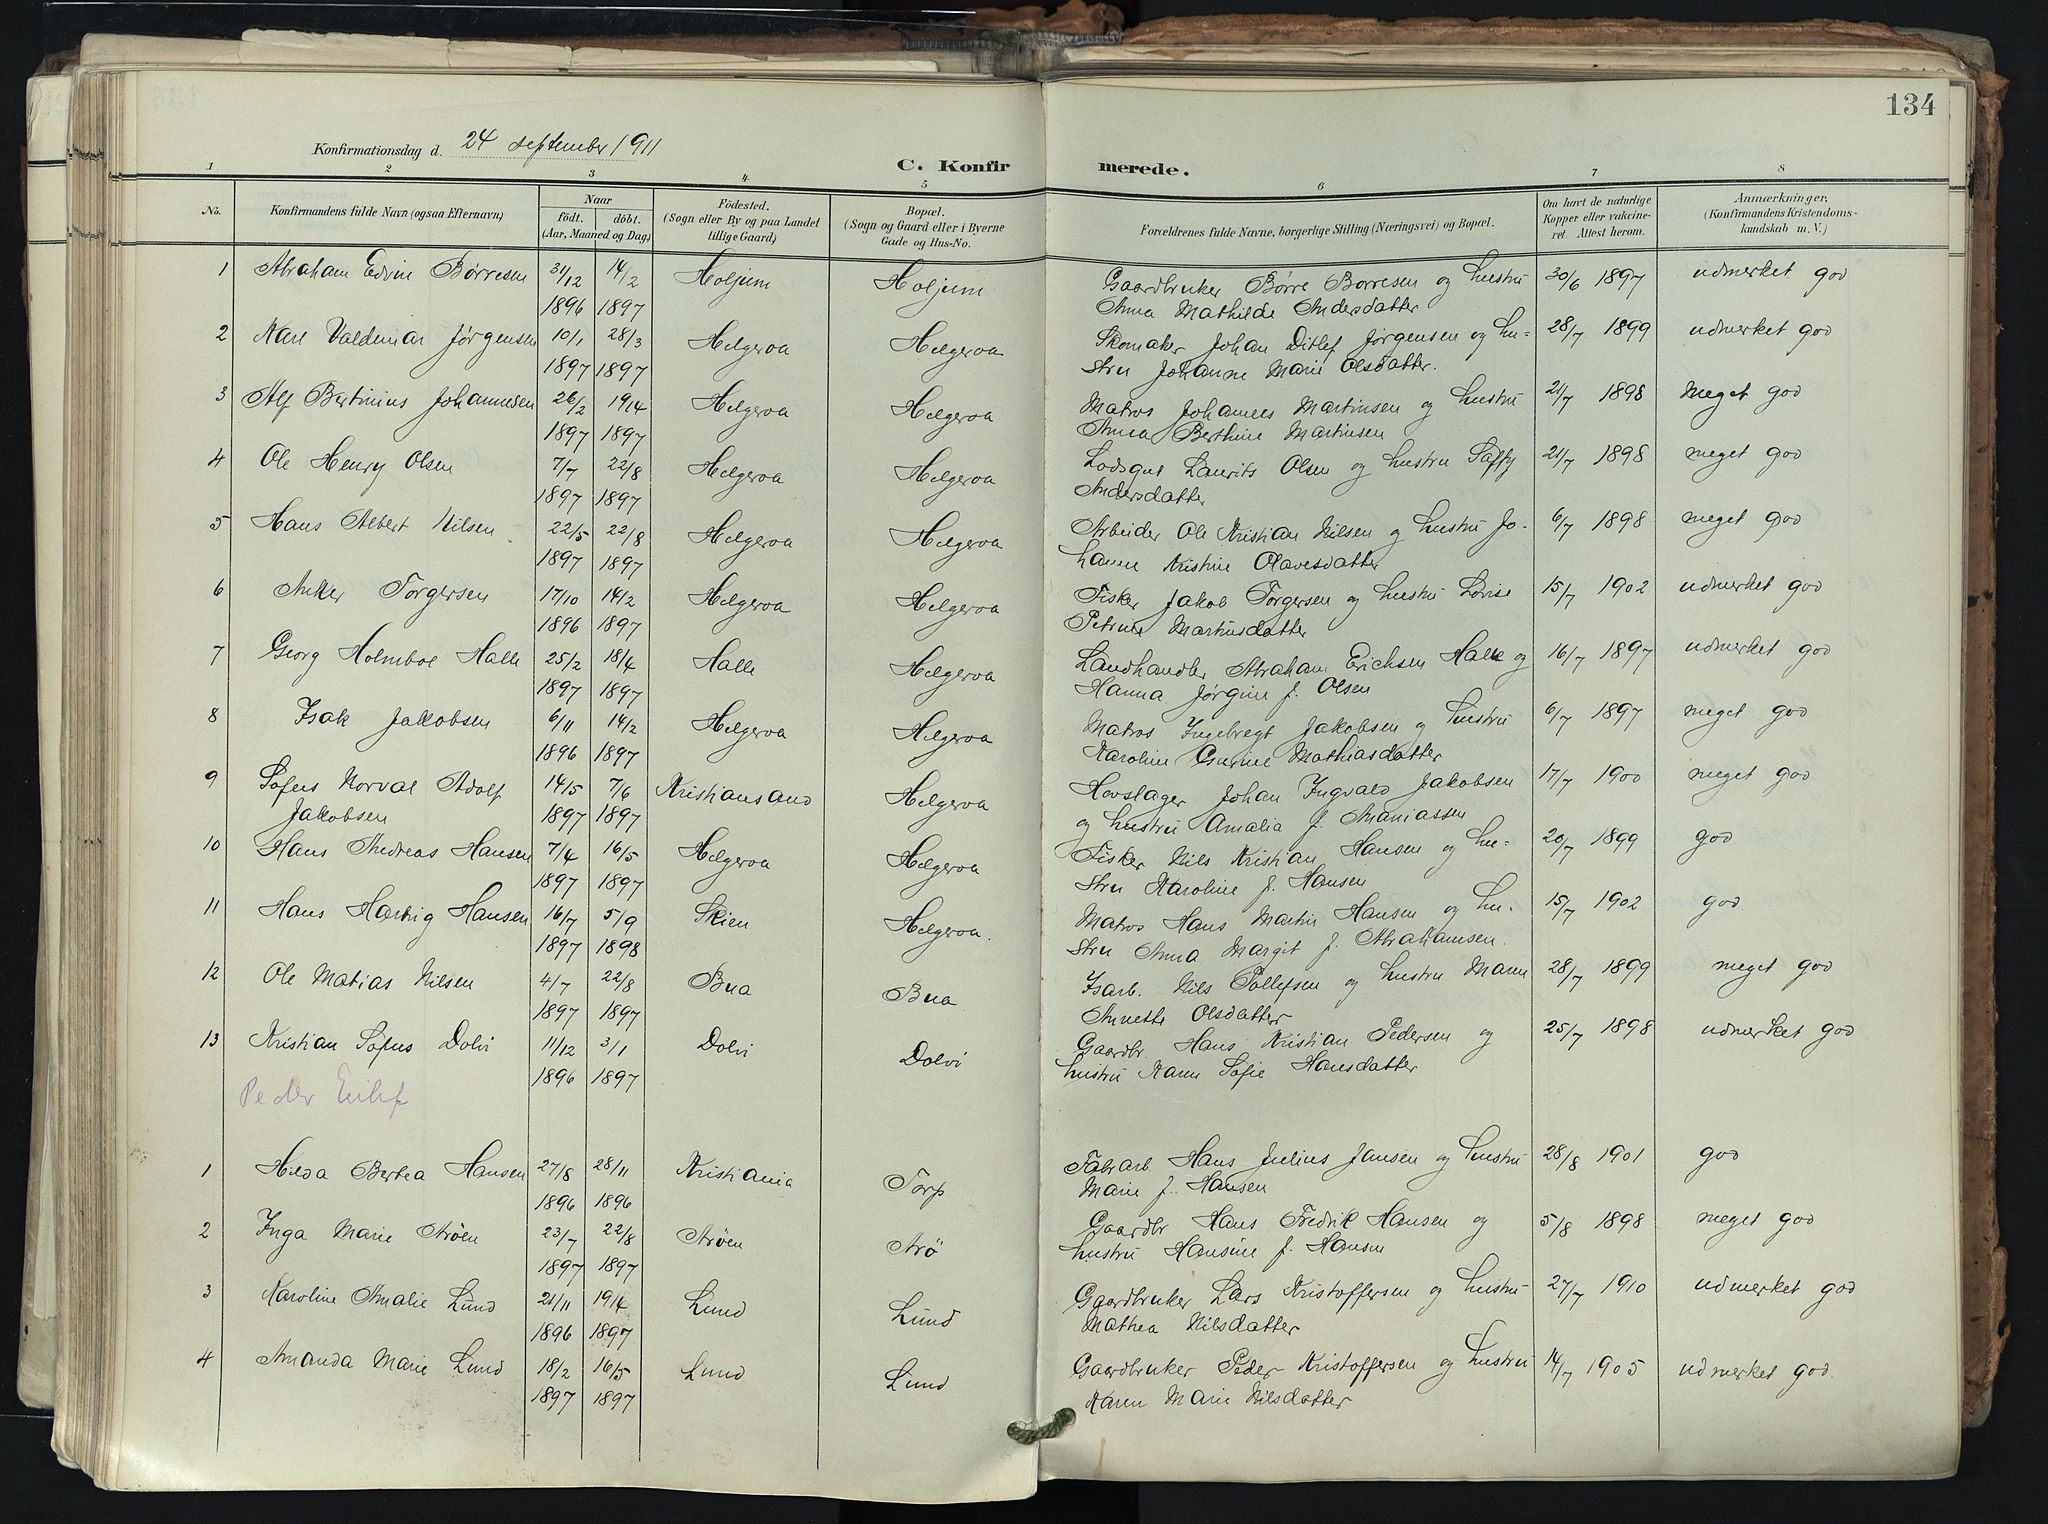 134
Konfirmationsdag d. 24 september 1911
C. Konfirmerede.
1 2 3 4 5 6 7 8
No.
Konfirmandens fulde Navn (ogsaa Efternavn)
Naar
födt. döbt.
(Aar, Maaned og Dag)
Födested.
(Sogn eller By og paa Landet
tillige Gaard)
Bopæl.
(Sogn og Gaard eller i Byerne
Gade og Hus-No.
Forældrenes fulde Navne, borgerlige Stilling (Næringsvei) og Bopæl.
Om havt de naturlige
Kopper eller vakcine-
ret. Attest herom.
Anmærkninger.
(Konfirmandens Kristendoms-
kundskab m. V.)
1 Abraham Edvin Børresen 31/12 14/2 Holjum Holjum Gaardbruker Børre Børresen og hustru 30/6 1897 udmerket god
1896 1897 Anna Mathilde Andersdatter
2 Karl Valdemar Jørgensen 10/1 28/3 Helgeroa Helgeroa Skomaker Johan Ditlef Jørgensen og hu= 28/7 1899 udmerket god
1897 1897 stru Johanne Marie Olsdatter.
3 Alf Bertinius Johannsen 26/2 19/4 Helgeroa Helgeroa Matros Johannes Martinsen og hustru 21/7 1898 meget god
1897 1897 Anna Berthine Martinsen
4 Ole Henry Olsen 7/7 22/8 Helgeroa Helgeroa Lodsgut Laurits Olsen og hustru Saffy 21/7 1898 meget god
1897 1897 Andersdatter
5 Hans Albert Nilsen 22/5 22/8 Helgeroa Helgeroa Arbeider Ole Kristian Nilsen og hustru Jo- 6/7 1898 meget god
1897 1897 hanne Kristine Olavesdatter
6 Anker Torgersen 17/10 14/2 Helgeroa Helgeroa Fisker Jakob Torgersen og hustru Lovise 15/7 1902 udmerket god
1896 1897 Petrine Martinsdatter
7 Georg Holmboe Halle 25/2 18/4 Halle Helgeroa Landhandler Abraham Erichsen Halle og 16/7 1897 udmerket god
1897 1897 Hanna Jørgine f. Olsen
8 Isak Jakobsen 6/11 14/2 Helgeroa Helgeroa Matros Ingebregt Jakobsen og hustru 6/7 1897 meget god
1896 1897 Karoline Gurine Mathiasdatter
9 Sofus Norval Adolf 14/5 7/6 Kristiansand Helgeroa Hovslager Johan Ingvald Jakobsen 17/7 1900 meget god
Jakobsen 1897 1897 og hustru Amalia f. Amaniassen
10 Hans Andreas Hansen 7/4 16/5 Helgeroa Helgeroa Fisker Nils Kristian Hansen og hu= 20/7 1899 god
1897 1897 stru Karoline f. Hansen
11 Hans Hartvig Hansen 16/7 5/9 Skien Helgeroa. Matros Hans Martin Hansen og hu- 15/7 1902 god
1897 1898 stru Anna Margit f. Abrahamsen.
12 Ole Matias Nilsen 4/7 22/8 Bua Bua Isarb. Nils Tollefsen og hustru Maren 28/7 1899 meget god
1897 1897 Annette Olsdatter
13 Kristian Sofus Dolvi 11/12 3/1 Dolvi Dolvi Gaardbr. Hans Kristian Pedersen og 25/7 1898 udmerket god
1896 1897 hustru Karen Sofie Hansdatter
Peder Eilef
1 Hilda Bertea Hansen 27/8 28/11 Kristiania Torp Fabrarb. Hans Julius Jansen og hustru 28/8 1901 god
1896 1896 Marie f. Hansen
2 Inga Marie Arøen 23/7 22/8 Arøen Arø Gaardbr Hans Fredrik Hansen og 5/8 1898 meget god
1897 1897 hustru Hansine f. Hansen
3 Karoline Amalie Lund 21/11 19/4 Lund Lund Gaardbruker Lars Kristoffersen og hustru 27/7 1910 udmerket god
1896 1897 Mathea Nilsdatter
4 Amanda Marie Lund 18/2 16/5 Lund Lund Gaardbruker Peder Kristoffersen og hustru 14/7 1905 udmerket god.
1897 1897 Karen Marie Nilsdatter